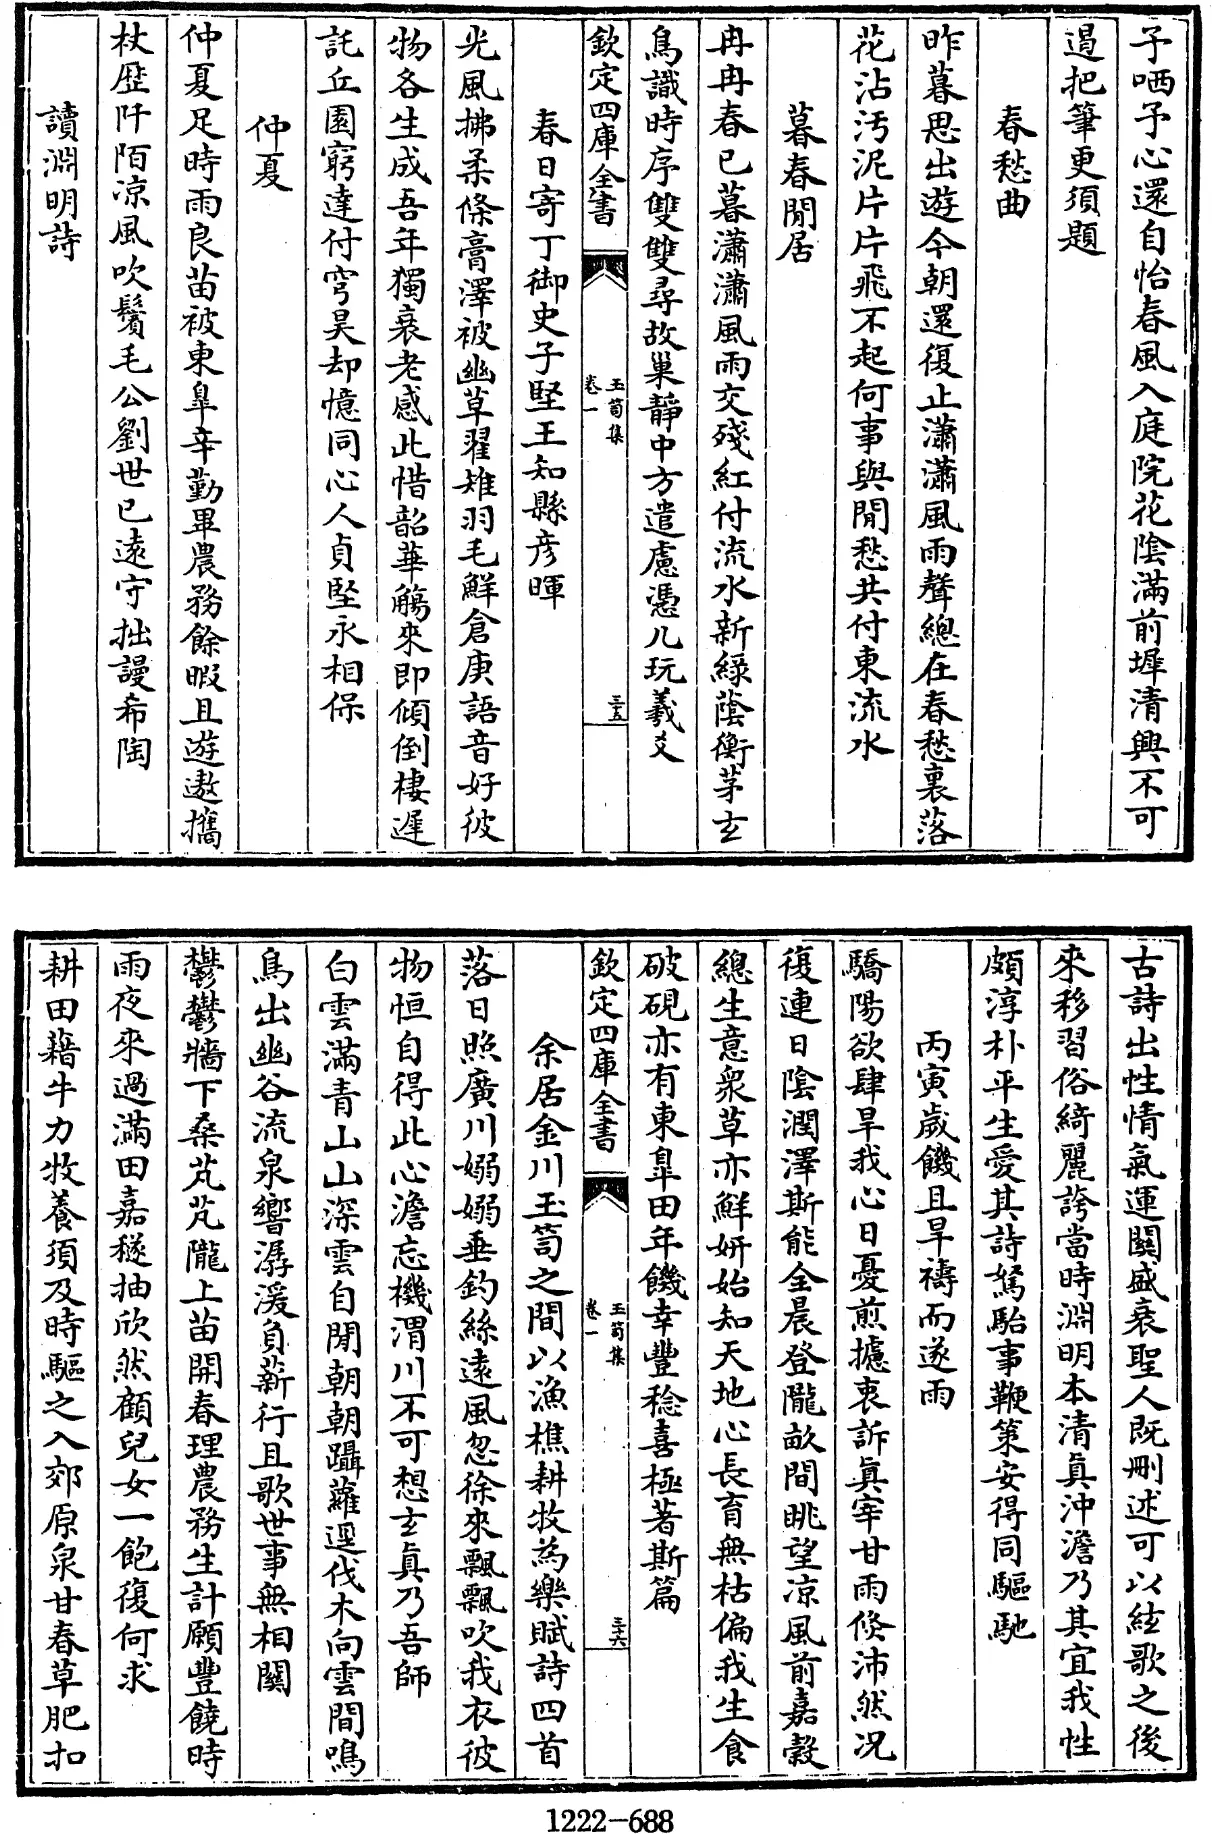 子哂予心還自怡春風入庭院花陰滿前墀清興不可
遏把筆更須題
春愁曲
昨暮思出遊今朝還復止瀟瀟風雨聲總在春愁裏落
花沾汚泥片片飛不起何事與閒愁共付東流水
暮春閒居
冉冉春已暮瀟瀟風雨交殘紅付流水新緑蔭衡茅玄
鳥識時序雙雙尋故巢靜中方遣慮憑几玩羲爻
欽定四庫全書
玉笥集
卷一
三五
春日寄丁御史子堅王知縣彦暉
光風拂柔條膏澤被幽草翟雉羽毛鮮倉庚語音好彼
物各生成吾年獨衰老感此惜韶華觴來即傾倒棲遲
託丘園窮達付穹昊却憶同心人貞堅永相保
仲夏
仲夏足時雨良苗被東臯辛勤畢農務餘暇且遊遨攜
杖歴阡陌凉風吹鬢毛公劉世已遠守拙謾希陶
讀淵明詩
古詩出性情氣運關盛衰聖人既刪述可以絃歌之後
來移習俗綺麗誇當時淵明本清眞沖澹乃其宜我性
頗淳朴平生愛其詩駑駘事鞭策安得同驅馳
丙寅歲饑且旱禱而遂雨
驕陽欲肆旱我心日憂煎攄衷訴眞宰甘雨倐沛然况
復連日陰潤澤斯能全晨登隴畝間眺望凉風前嘉穀
總生意衆草亦鮮妍始知天地心長育無枯偏我生食
破硯亦有東臯田年饑幸豐稔喜極著斯篇
欽定四庫全書
玉笥集
卷一
三六
余居金川玉笥之間以漁樵耕牧為樂賦詩四首
落日照廣川嫋嫋垂釣絲遠風忽徐來飄飄吹我衣彼
物恒自得此心澹忘機渭川不可想玄真乃吾師
白雲滿青山山深雲自閒朝朝躡蘿逕伐木向雲間鳴
鳥出幽谷流泉響潺湲負薪行且歌世事無相關
鬱鬱牆下桑芃芃隴上苗開春理農務生計願豐饒時
雨夜來過滿田嘉穟抽欣然顧兒女一飽復何求
耕田藉牛力牧養須及時驅之入郊原泉甘春草肥扣
1222-688